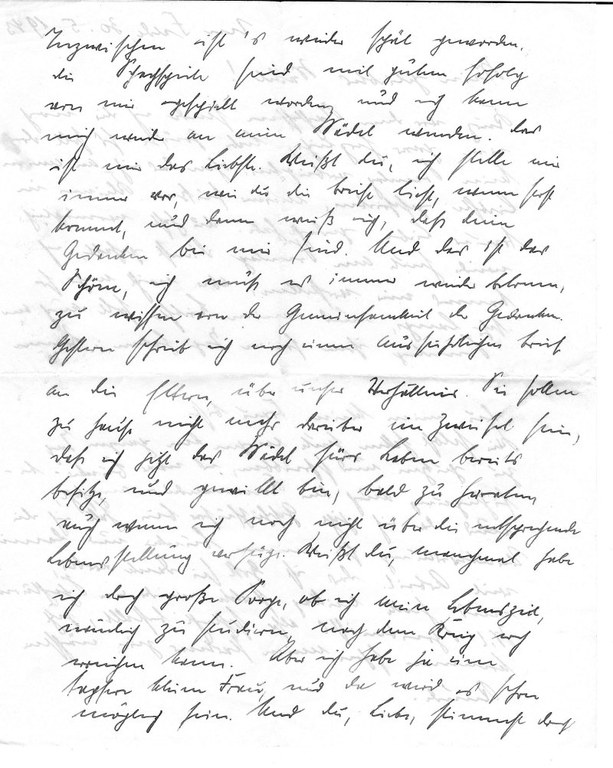 Inzwischen ist 's wieder spät geworden.
die Schachspiele sind mit gutem Erfolg
von mir gespielt worden, und ich kann
mich wieder an mein Mädel wenden. Das
ist mir das Liebste. Weißt du, ich stelle mir
immer vor, wie du die Briefe liest, wenn Post
kommt, und dann weiß ich, daß deine
Gedanken bei mir sind. Und das ist das
Schöne, ich muß es immer wieder betonen,
zu wissen von der Gemeinsamkeit der Gedanken.
Gestern schrieb ich noch einen ausführlichen Brief
an die Eltern, über unser Verhältnis. Sie sollen
zu Hause nicht mehr darüber im Zweifel sein,
daß ich jetzt das Mädel fürs Leben bereits
besitze, und gewillt bin, bald zu heiraten,
auch wenn ich noch nicht über die entsprechende
Lebensstellung verfüge. Weißt du, manchmal habe
ich doch große Sorge, ob ich mein Lebensziel,
nämlich zu studieren, nach dem Krieg noch
erreichen kann. Aber ich habe ja eine
tapfere kleine Frau, und da wird es schon
möglich sein. Und du, Liebe, stimmst doch